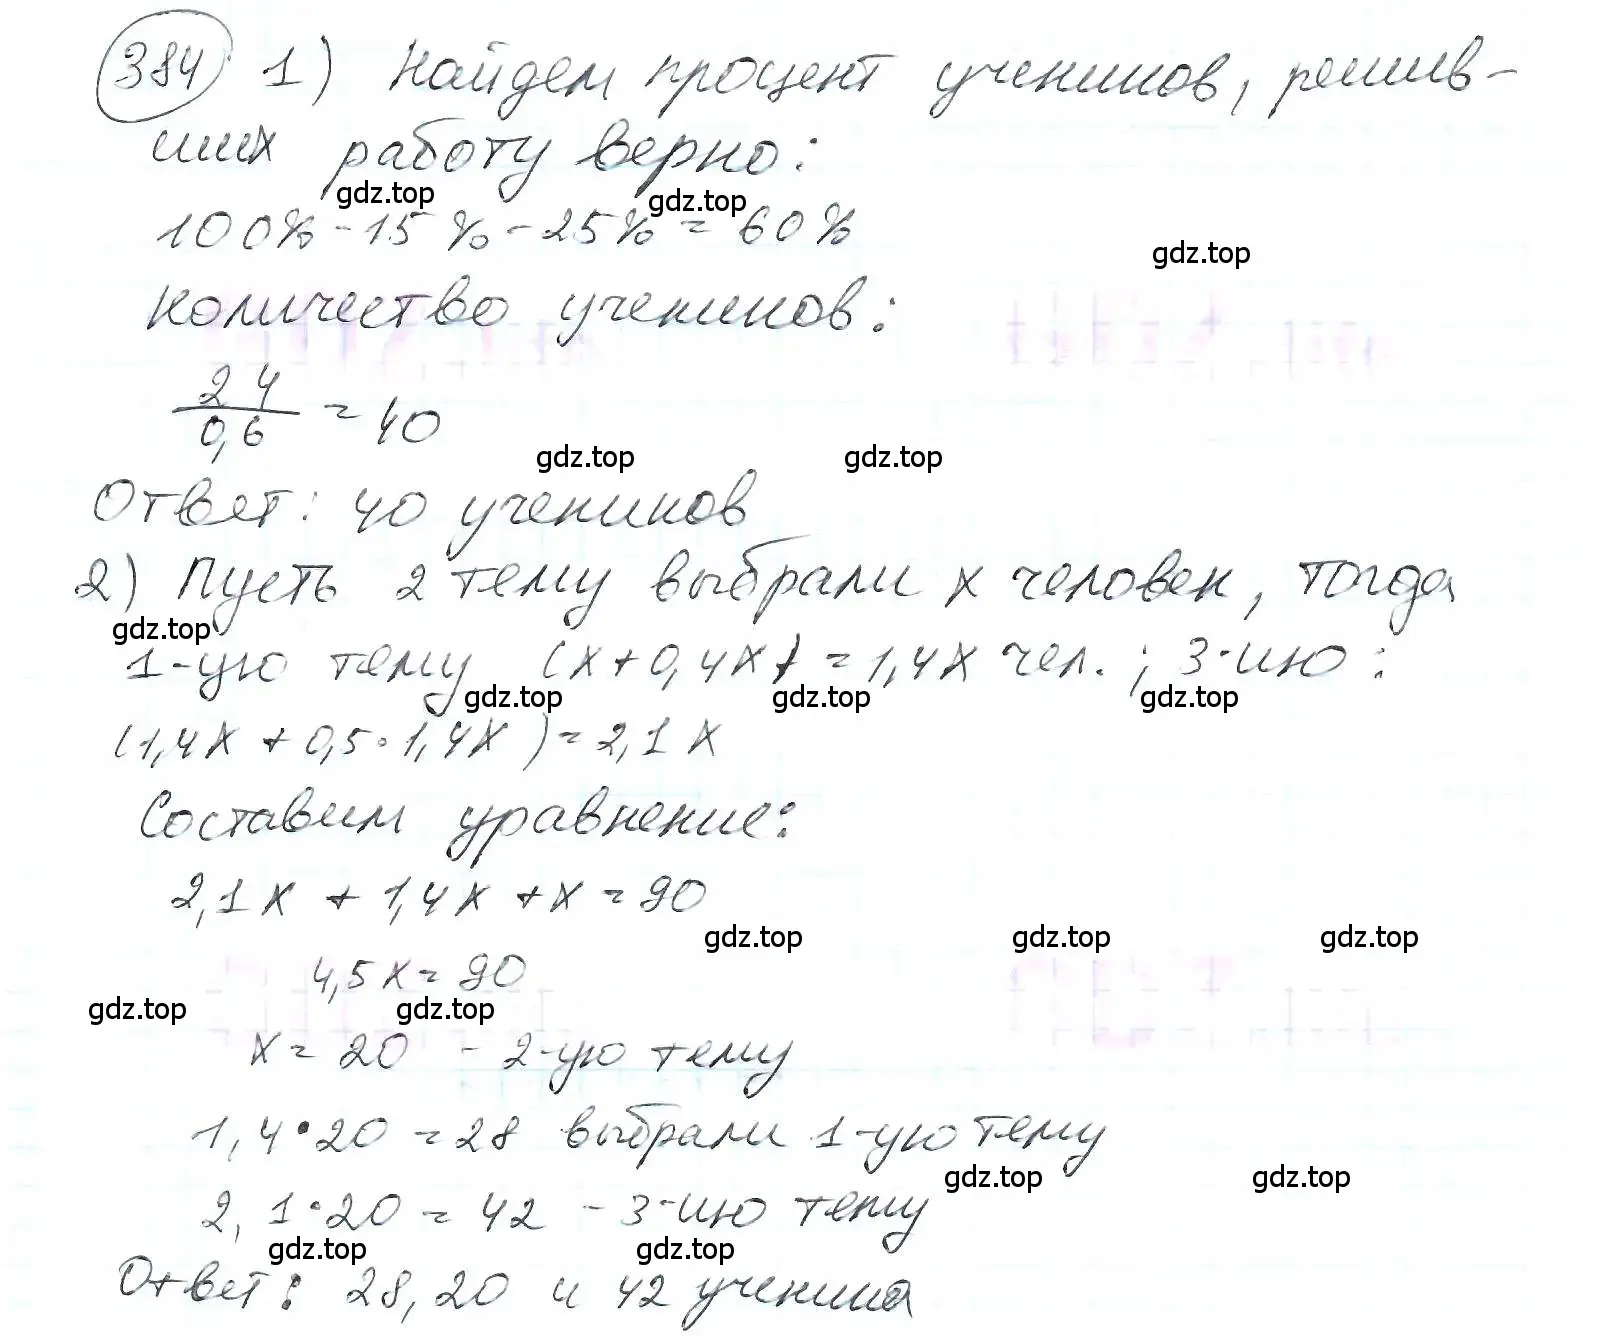 384 1) Найдем процент учеников, решив-
ших работу верно:
gdz.top gdz.top
100% - 15% - 25% = 60%
gdz.top
Количество учеников:
24/0,6 = 40
gdz.top gdz.top
Ответ: 40 учеников
2) Пусть 2 тему выбрали x человек, тогда
gdz.top
1-ую тему (x+0,4x) = 1,4x чел.; 3-ию:
gdz.top gdz.top gdz.top
(1,4x + 0,5·1,4x) = 2,1x
Составим уравнение:
2,1x + 1,4x + x = 90
gdz.top gdz.top gdz.top
4,5x = 90
gdz.top gdz.top
x = 20 - 2-ую тему
1,4·20 = 28 выбрали 1-ую тему
gdz.top gdz.top
2,1·20 = 42 - 3-ию тему
gdz.top gdz.top
Ответ: 28, 20 и 42 ученика